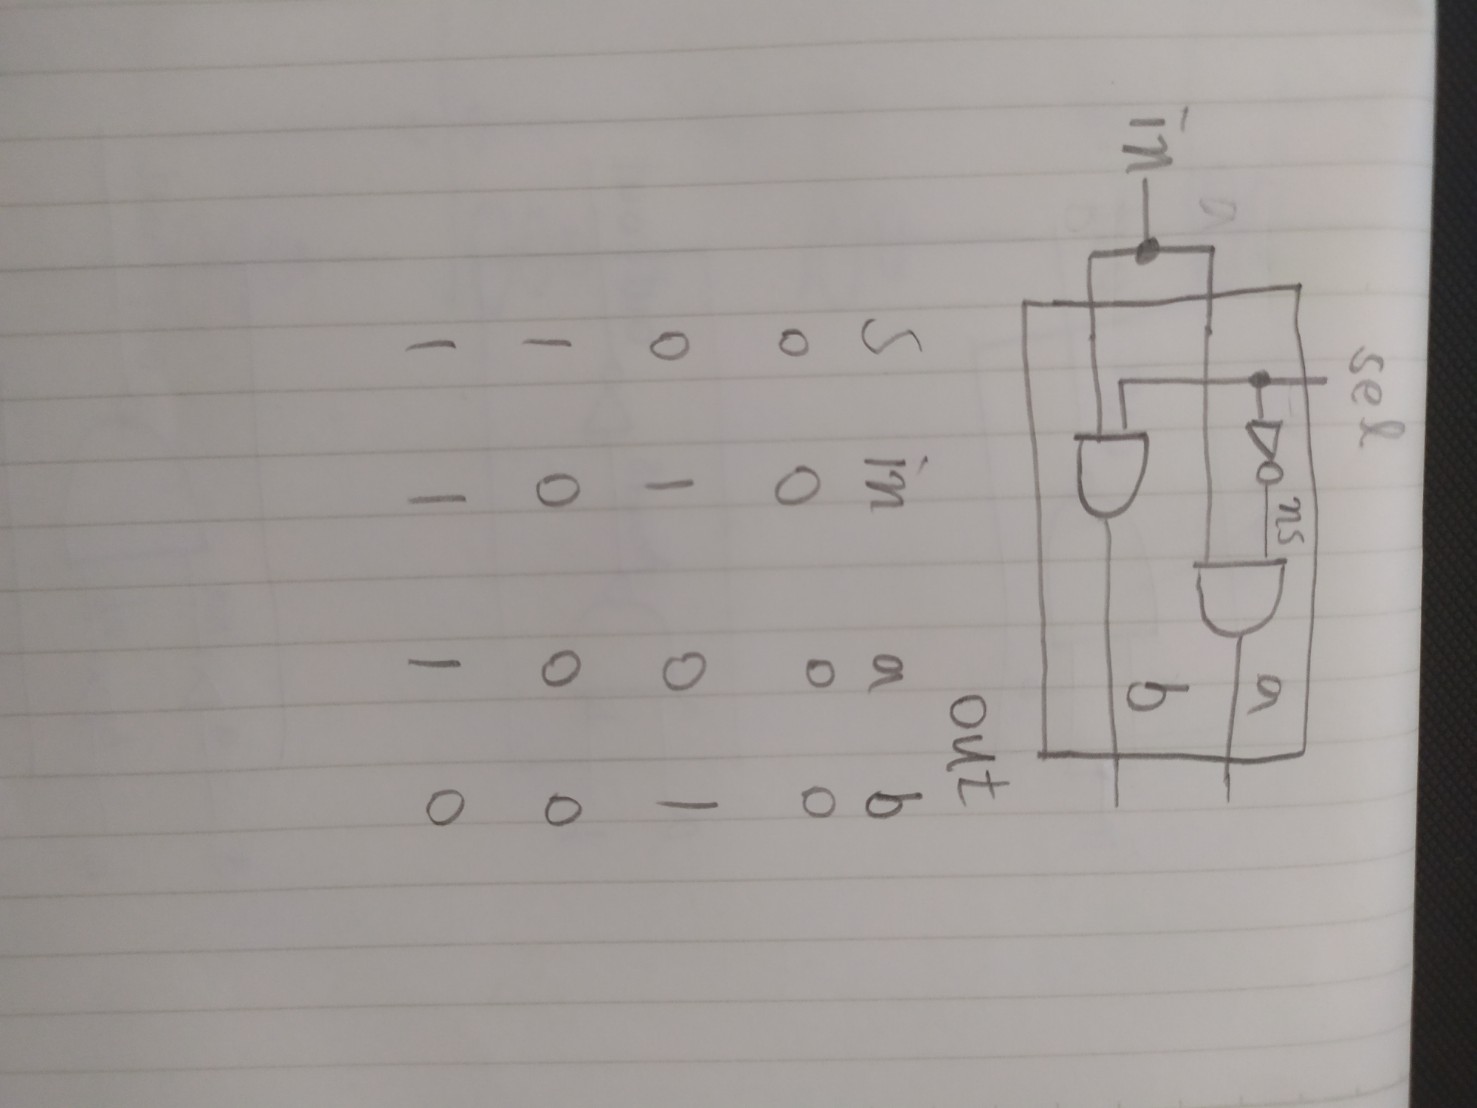 sel
ns
a
in
b
out
S in a b
0 0 0 0
0 1 0 1
1 0 0 0
1 1 1 0